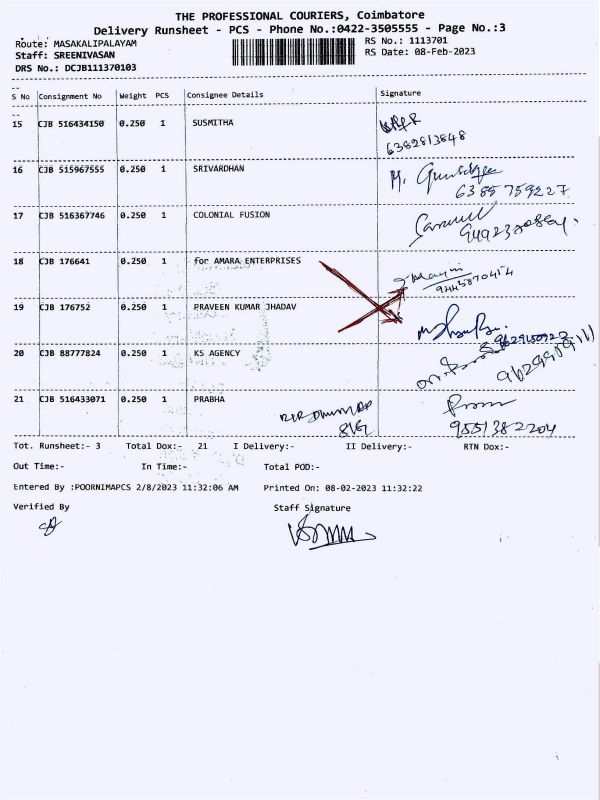 THE PROFESSIONAL COURIERS, Coimbatore
Delivery Runsheet - PCS - Phone No.:0422-3505555 - Page No.:3
Route: MASAKALIPALAYAM
RS No.: 1113701
Staff: SREENIVASAN
RS Date: 08-Feb-2023
DRS No.: DCJB111370103
S No Consignment No Weight PCS Consignee Details Signature
15 CJB 516434150 0.250 1 SUSMITHA
6382813848
16 CJB 515967555 0.250 1 SRIVARDHAN
6385 759227
17 CJB 516367746 0.250 1 COLONIAL FUSION
18 CJB 176641 0.250 1 for AMARA ENTERPRISES
19 CJB 176752 0.250 1 PRAVEEN KUMAR JHADAV
20 CJB 88777824 0.250 1 KS AGENCY
21 CJB 516433071 0.250 1 PRABHA
9551382204
Tot. Runsheet:- 3 Total Dox:- 21 I Delivery:- II Delivery:- RTN Dox:-
Out Time:- In Time:- Total POD:-
Entered By :POORNIMAPCS 2/8/2023 11:32:06 AM Printed On: 08-02-2023 11:32:22
Verified By Staff Signature